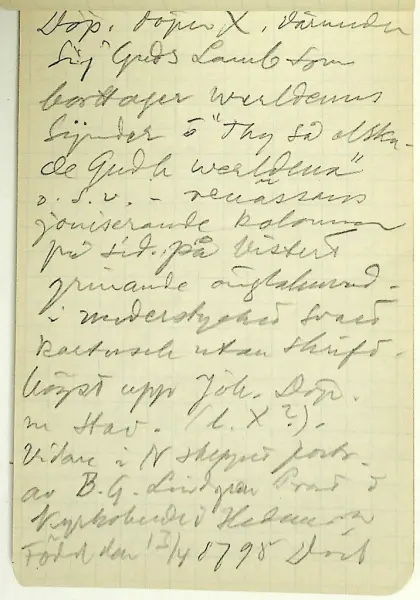 Döp. döper X, därunder
Si! Guds Lamb som
borttager werldenns
Synder o "Thy så älska-
de Gudh werldena"
o. s. v. - renässans
joniserande kolonner
på sid. på
grinande änglahuvud -
i understycket svart
kartusch utan skrift.
högst upp Joh. Döp.
m stav. (l. X?).
Vidare i N skeppet portr.
av B. G. Lindgren Prost o
Kyrkoherde i Hedemora
Född den 13/4 1795 Död